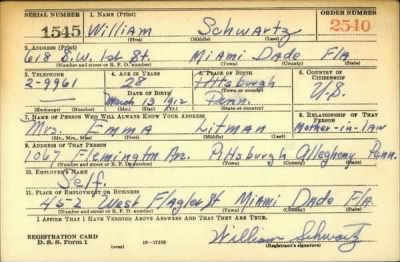 SERIAL NUMBER 1. NAME (Print) ORDER NUMBER
1545 William Schwartz 2540
(First) (Middle) (Last)
2. ADDRESS (Print)
618 S.W. 1st St. Miami Dade Fla.
(Number and street or R. F. D. number) (Town) (County) (State)
3. TELEPHONE 4. AGE IN YEARS 5. PLACE OF BIRTH 6. COUNTRY OF CITIZENSHIP
2-9961 28 Pittsburgh
DATE OF BIRTH (Town or county) U.S.
March 13 1912 Penn.
(Exchange) (Number) (Mo.) (Day) (Yr.) (State or country)
7. NAME OF PERSON WHO WILL ALWAYS KNOW YOUR ADDRESS 8. RELATIONSHIP OF THAT PERSON
Mrs. Emma Litman Mother-in-law
(Mr., Mrs., Miss) (First) (Middle) (Last)
9. ADDRESS OF THAT PERSON
1067 Flemington Ave. Pittsburgh Allegheny Penn.
(Number and street or R. F. D. number) (Town) (County) (State)
10. EMPLOYER'S NAME
Self.
11. PLACE OF EMPLOYMENT OR BUSINESS
452 West Flagler St Miami Dade Fla.
(Number and street or R. F. D. number) (Town) (County) (State)
I AFFIRM THAT I HAVE VERIFIED ABOVE ANSWERS AND THAT THEY ARE TRUE.
REGISTRATION CARD William Schwartz
D. S. S. Form 1 (over) (Registrant's signature)